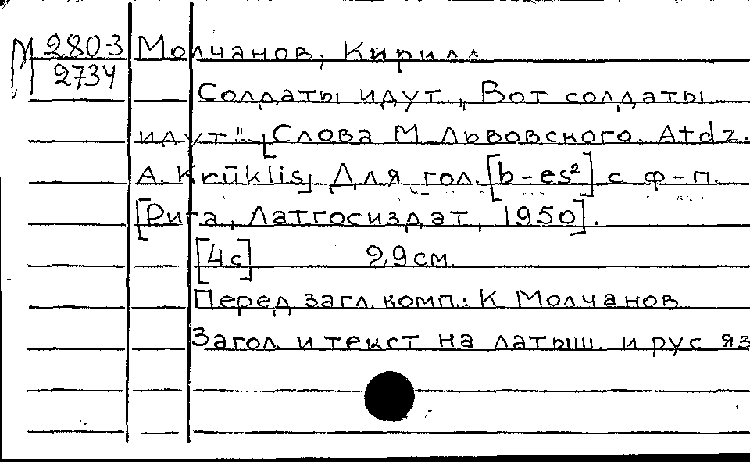 М 280-3
2734
Молчанов, Кирилл
Солдаты идут „Вот солдаты
идут". [Слова М. Львовского. Atdz.
A. Krūklis] Для гол. [b-es²] с ф-п.
[Рига, Латгосиздат, 1950].
[4 с] 29 см.
Перед загл. комп.: К. Молчанов
Загол. и текст на латыш. и рус яз